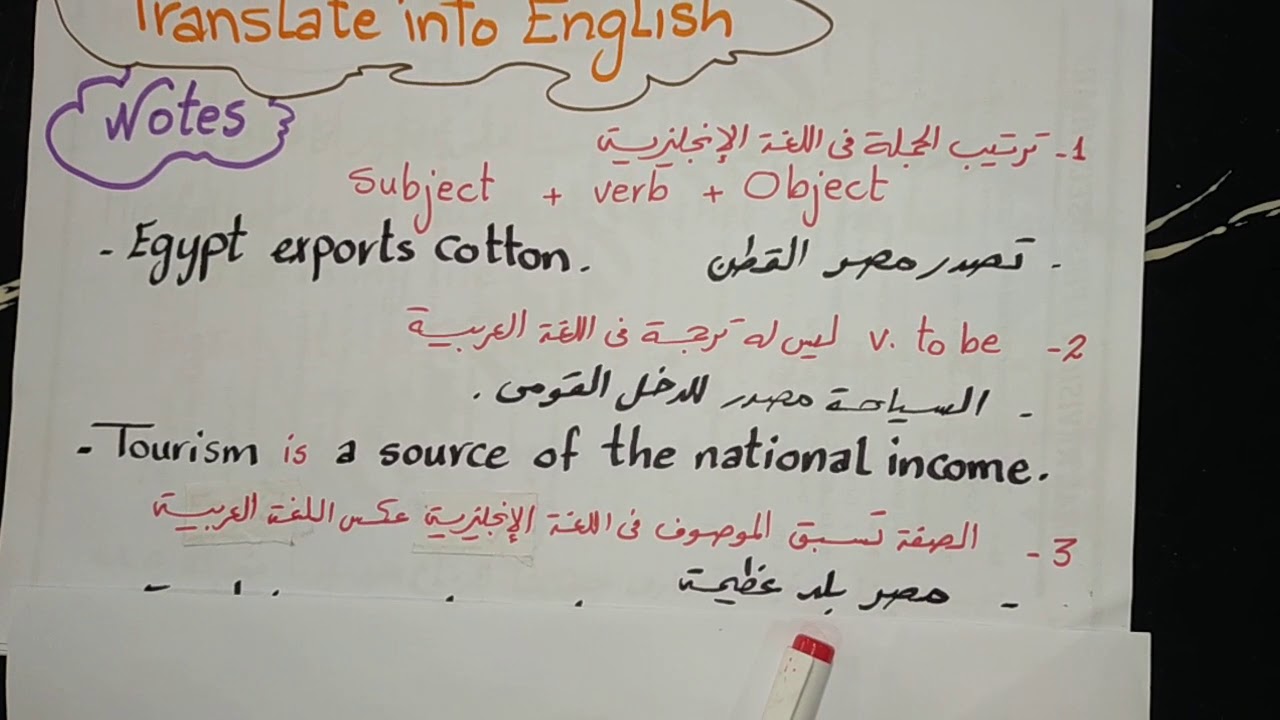 Translate into English
Notes
1- ترتيب الجملة فى اللغة الإنجليزية
Subject + verb + Object
- Egypt exports cotton. - تصدر مصر القطن
2- v. to be ليس له ترجمة فى اللغة العربية
- السياحة مصدر للدخل القومى .
- Tourism is a source of the national income.
3- الصفة تسبق الموصوف فى اللغة الإنجليزية عكس اللغة العربية
- مصر بلد عظيمة